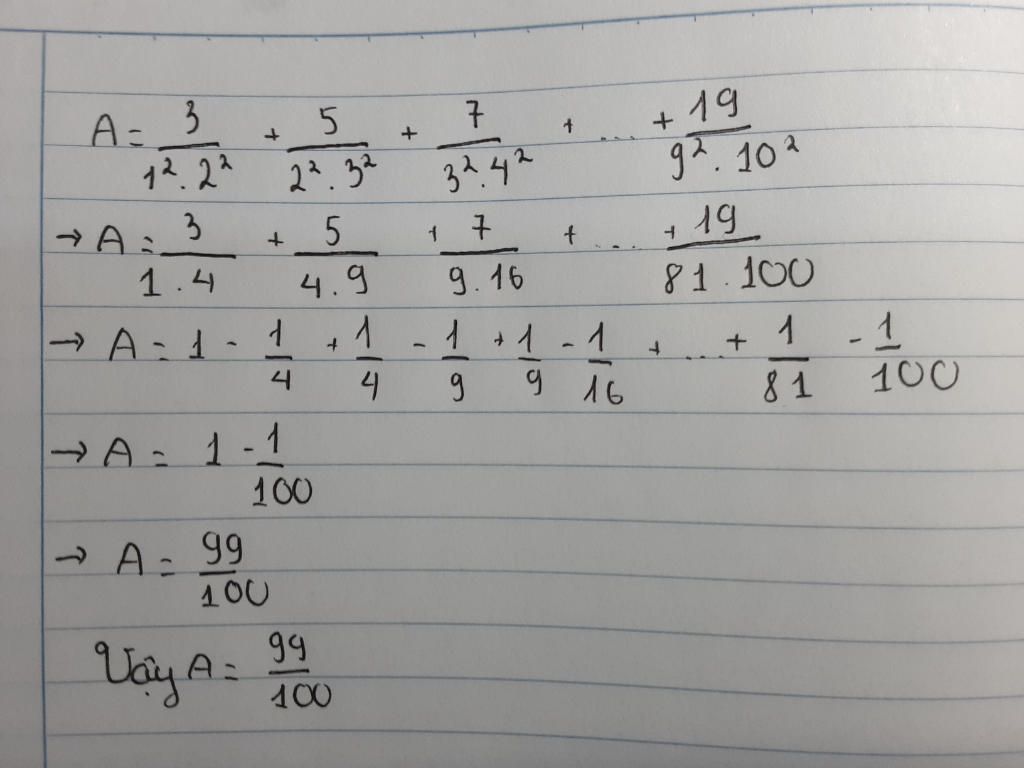 A = 3/(1².2²) + 5/(2².3²) + 7/(3².4²) + ... + 19/(9².10²)
→ A = 3/(1.4) + 5/(4.9) + 7/(9.16) + ... + 19/(81.100)
→ A = 1 - 1/4 + 1/4 - 1/9 + 1/9 - 1/16 + ... + 1/81 - 1/100
→ A = 1 - 1/100
→ A = 99/100
Vậy A = 99/100